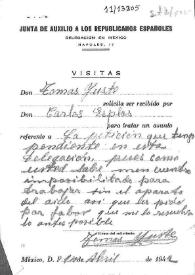 12/13305
JUNTA DE AUXILIO A LOS REPUBLICANOS ESPAÑOLES
DELEGACION EN MEXICO
NAPOLES, 17
VISITAS
Don Tomas Yuste
solicita ser recibido por
Don Carlos Esplas
para tratar un asunto
referente a La petición que tengo
pendiente en esta
Delegación, pues como
usted sabe me encuentro
imposibilitado para
trabajar sin el aparato
del
por favor que me lo resuelva
lo antes posible
Firma del solicitante,
Tomas Yuste
México, D. F. Abril de 194